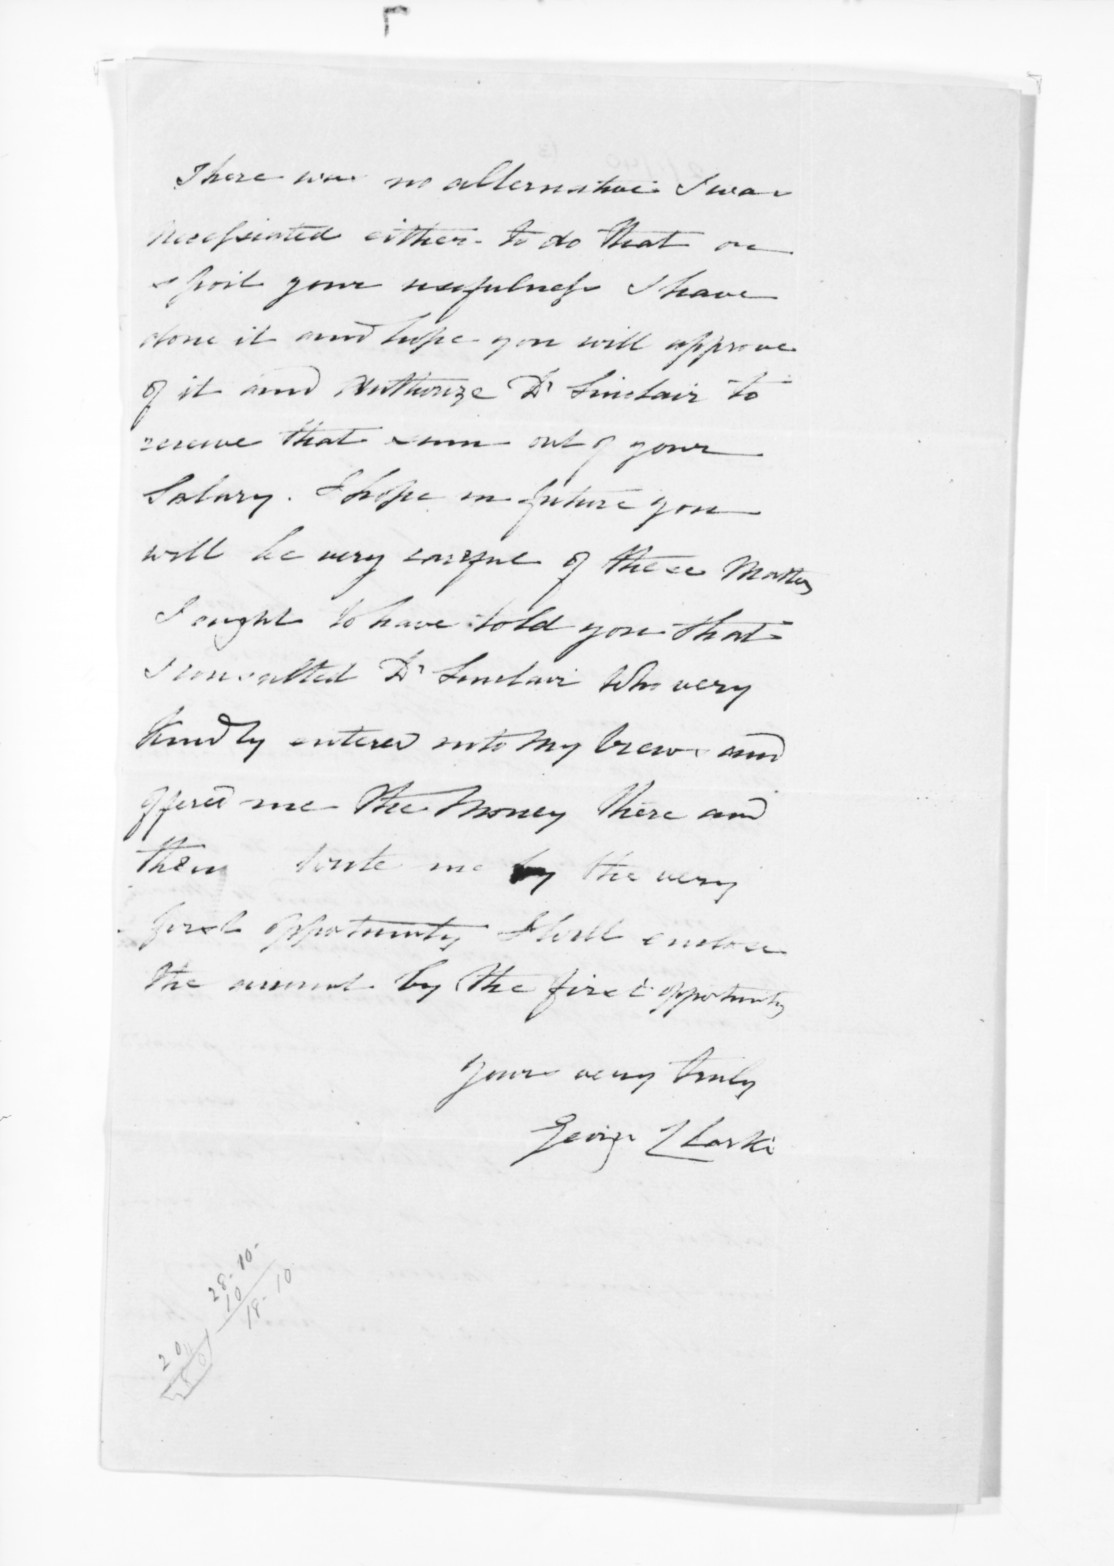 There was no alternative I was
necessiated either to do that or
spoil your usefulness I have
done it and hope you will approve
of it and Authorize Dr Sinclair to
receive that sum out of your
Salary. I hope in future you
will be very careful of these Matters
I ought to have told you that
I consulted Dr Sinclair Who very
Kindly entered into My views and
offered me the Money there and
then write me by the very
first opportunity I will enclose
the amount by the first opportunity
Yours very truly
George Clarke
28-10-
10
18-10
20